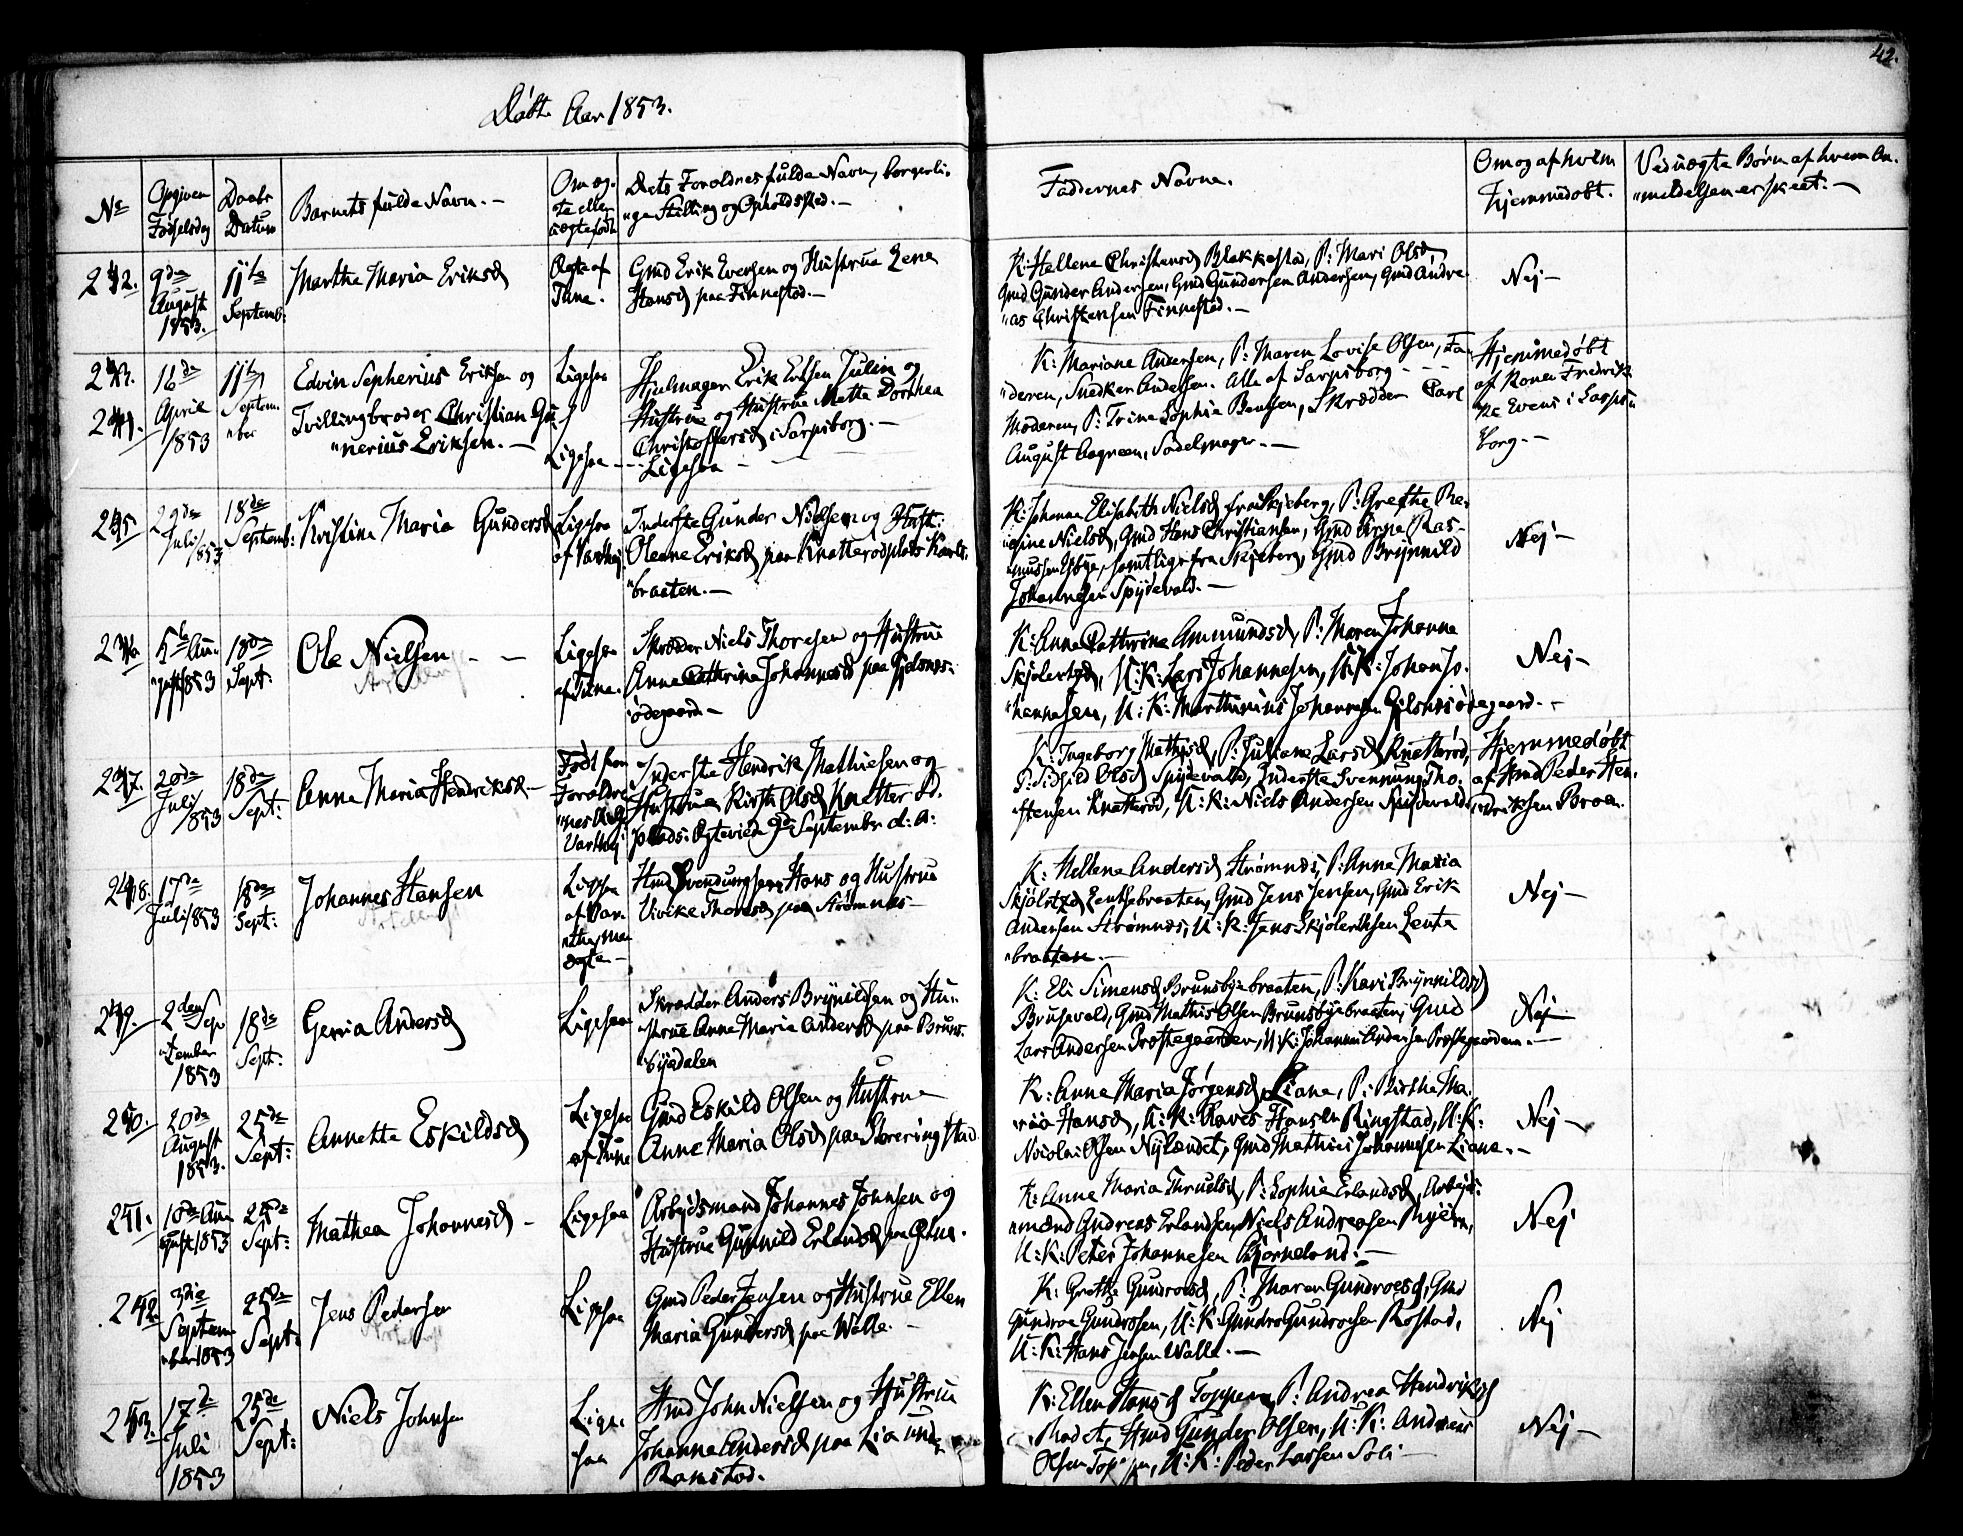 42.
Døbte Aar 1853.
No
Opgiven
Fødselsdag
Daabs
Datum
Barnets fulde Navn. —
Om æg-
te eller
uægte født
Dets Forældres fulde Navn, borgerli-
"ge Stilling og Opholdssted. —
Faddernes Navne.
Om og af hvem
hjemmedøbt.
Ved uægte Børn af hvem An-
"meldelsen er skeet. —
242.
9de
August
1853.
11te
Septemb:
Marthe Maria Eriksd
Ægte af
Tune.
Gmd Erik Evensen og Hustrue Lene
Hansd paa Finnestad. —
K: Hellene Christensd Blakkestad, P: Mari Olsd,
Gmd Gunder Andersen, Gmd Gundersen Andersen, Gmd Andre-
"as Christensen Finnestad. —
Nej —
243.
244.
16de
April
1853
11te
Septem-
"ber
Edvin Sepherius Eriksen og
Tvillingbroder Christian Gu-
"nerius Eriksen. —
Ligesaa
Ligesaa
Hjulmager Erik Ersen Julin og
Hustrue og Hustrue Mette Dorthea
Christoffersd i Sarpsborg. —
Ligesaa —
K: Mariane Andersen, P: Maren Lovise Olsen, Fa-
"deren, Snedker Andersen. Alle af Sarpsborg - - -
Moderen, P: Trine Sophie Bentsen, Skrædder Carl
August Aagreen, Sadelmager. —
Hjemmedøbt
af Konen Fredrik-
"ke Evens i Sarps-
borg. —
245.
29de
Juli
1853
18de
Septemb:
Kristine Maria Gundersd
Ligesaa
af Varteig
Inderste Gunder Nielsen og Hust:
Oleane Eriksd paa Knatterødplads Karls-
"braaten. —
K: Johanne Elisabeth Nielsd fra Skjeberg, P: Grethe Re-
"gine Nielsd, Gmd Hans Christiansen, Gmd Arne Ras-
"mussen, samtlige fra Skjeberg, Gmd Brynnild
Johannesen Spydevold. —
Nej —
246
5te Au-
"gust 1853
18de
Sept:
Ole Nielsen - —
Ligesaa
af Tune.
Skrædder Niels Thoresen og Hustrue
Anne Cathrine Johannesd paa Gjelsnes-
"ødegaard —
K: Anne Cathrine Ammundsd, P: Maren Johanne
Skjølertsd, U: K: Lars Johannesen, U: K: Johan Jo-
"hannesen, U: K: Marthinius Johannesen Gjelsnesødegaard. -
Nej —
247.
20de
Juli
1853
18de
Sept:
Anne Maria Hendriksd. —
Født før
Forældre-
"nes
Varteig
Inderste Hendrik Mathiesen og
Hustrue Kirsti Olsd Knatterød-
plads. Ægteviede 9de September d: A:
K: Ingeborg Mathisd, P: Juliane Larsd Knatterød,
P: Sidsild Olsd Spydevold, Inderste Svennung Tho-
"stensen Knatterød, U: K: Niels Andersen Spydevold
Hjemmedøbt
af Hmd Peder Hen-
"driksen Braa.
248.
17de
Juli 1853
18de
Sept:
Johannes Hansen
Ligesaa
af Var-
Hmd Svendungsen Hans og Hustrue
Vivike Thoresd paa Strømnes —
K: Hellene Andersd Strømnes, P: Anne Maria
Skjølstsd Lentebraaten, Gmd Jens Jensen, Gmd Erik
Andersen Strømnes, U: K: Jens Skjølertsen Lente
"braaten. —
Nej —
249.
2den Sep
"tember
1853
18de
Sept:
Gerria Andersd
Ligesaa
Skrædder Anders Brynildsen og Hu-
"strue Anne Maria Andersd paa Bruns-
"byedalen
K: Eli Simensd Brunsbyebraaten, P: Kari Brynnildsd
Brusevold, Gmd Mathis Olsen Brunsbyebraaten, Gmd
Lars Andersen Prestegaarden, U: K: Johannes Andersen Prestegaarden. —
Nej —
250.
20de
August
1853.
25de
Sept:
Annette Eskildsd
Ligesaa
af Tune
Gmd Eskild Olsen og Hustrue
Anne Maria Olsd paa Storeringstad
K: Anne Maria Jörgensd Liane, P: Birthe Ma-
ria Hansd, U: K: Claves Hansen Ringstad, U: K:
Nicolai Olsen Nylændet, Gmd Mathies Johannesen Liane. —
Nej —
251.
18de Au-
gust 1853
25de
Sept:
Mathea Johannesd —
Ligesaa
Arbeidsmand Johannes Johnsen og
Hustrue Gunnild Erlandsd paa
K: Anne Maria Thruelsd, P: Sophie Erlandsd, Arbejds-
"mænd Andreas Erlandsen, Niels Andreasen
U: K: Peter Johannesen Bjørneland. —
Nej
252
3die
Septem-
"ber 1853
25de
Sept:
Jens Pedersen
Ligesaa
Gmd Peder Jensen og Hustrue Ellen
Maria Gundersd paa Walle. —
K: Grethe Gundroesd, P: Maren Gundroesd, Gmd
Gundroe Gundrosen, U: K: Gundro Gundroesen Rostad,
U: K: Hans Jensen Walle. —
Nej
253.
17de
Juli
1853
25de
Sept:
Niels Johnsen
Lige-
saa
Hmd John Nielsen og Hustrue
Johanne Andersd paa Lia under
Ramstad.
K: Ellen Hansd Toppen, P: Andrea Hendriksd
Hmd Gunder Olsen, U: K: Andreas
Olsen Toppen, U: K: Peder Larssen Soli —
Nej —